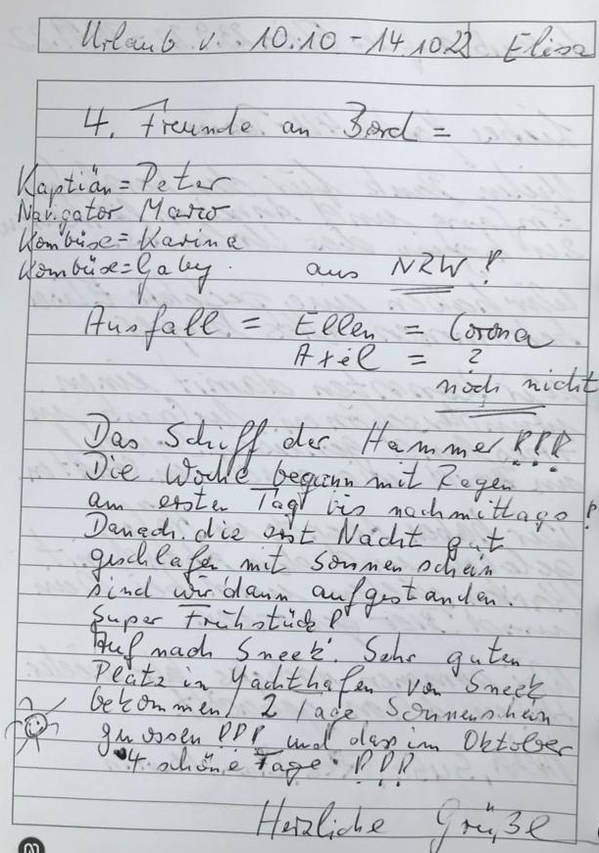 Urlaub v. 10.10 - 14.1022 Elisa
4. Freunde an Bord =
Kaptiän = Peter
Navigator Marco
Kombüse = Karina
Kombüse = Gaby. aus NRW!
Ausfall = Ellen = Corona
Axel = ?
noch nicht
Das Schiff der Hammer!!!
Die Woche begann mit Regen
am ersten Tag bis nachmittags!
Danach die erst Nacht gut
geschlafen mit Sonnenschein
sind wir dann aufgestanden.
Super Frühstück!
Auf nach Sneek. Sehr guten
Platz in Yachthafen von Sneek
bekommen! 2 Tage Sonnenschein
!!! und das im Oktober
4. schöne Tage. !!!
Herzliche Grüße